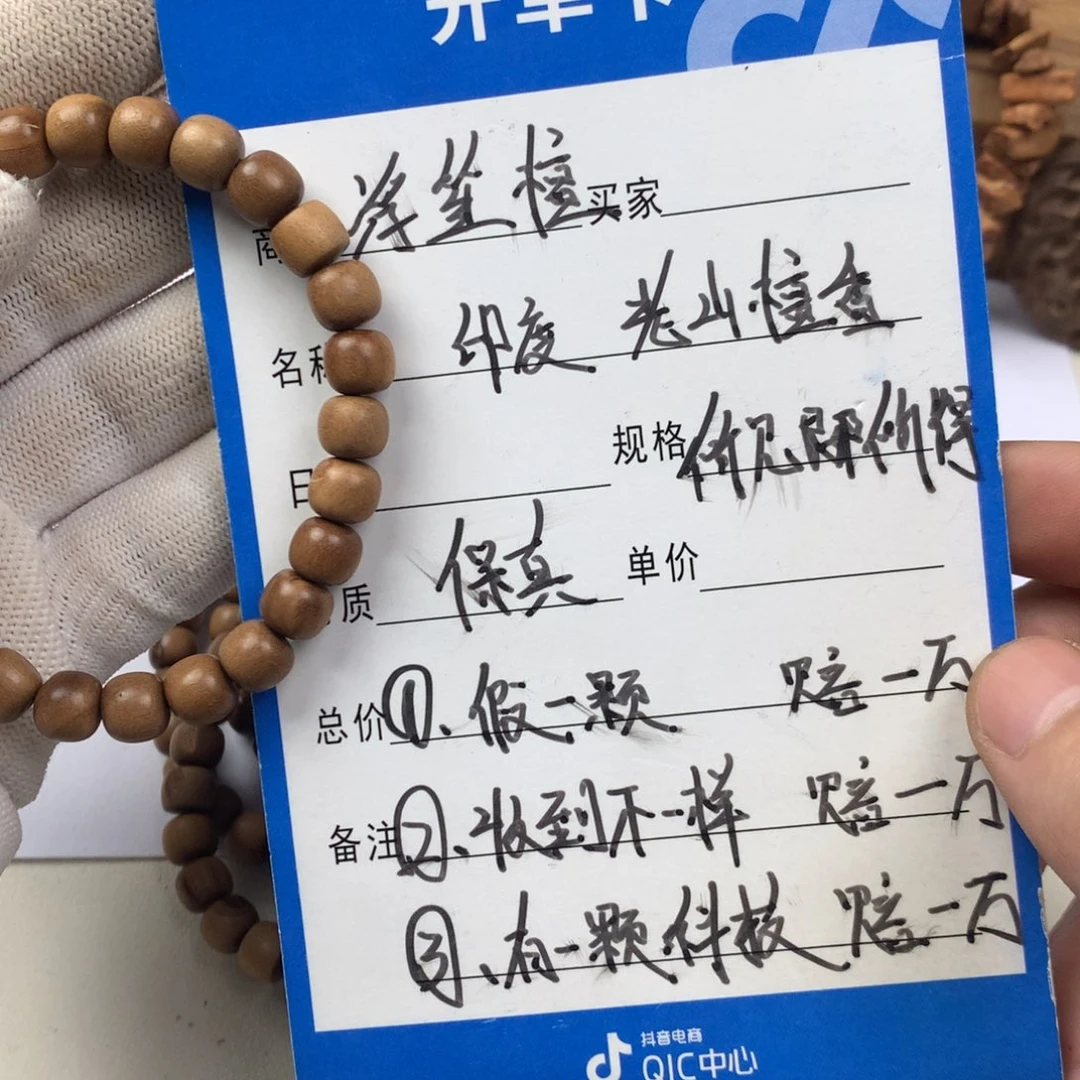 开单卡
商 浮笙檀 买家
名称 印度 老山檀香
日 规格 所见即所得
质 保真 单价
总价 ①、假一颗 赔一万
备注 ②、收到不一样 赔一万
③、有一颗科技 赔一万
抖音电商
QIC中心